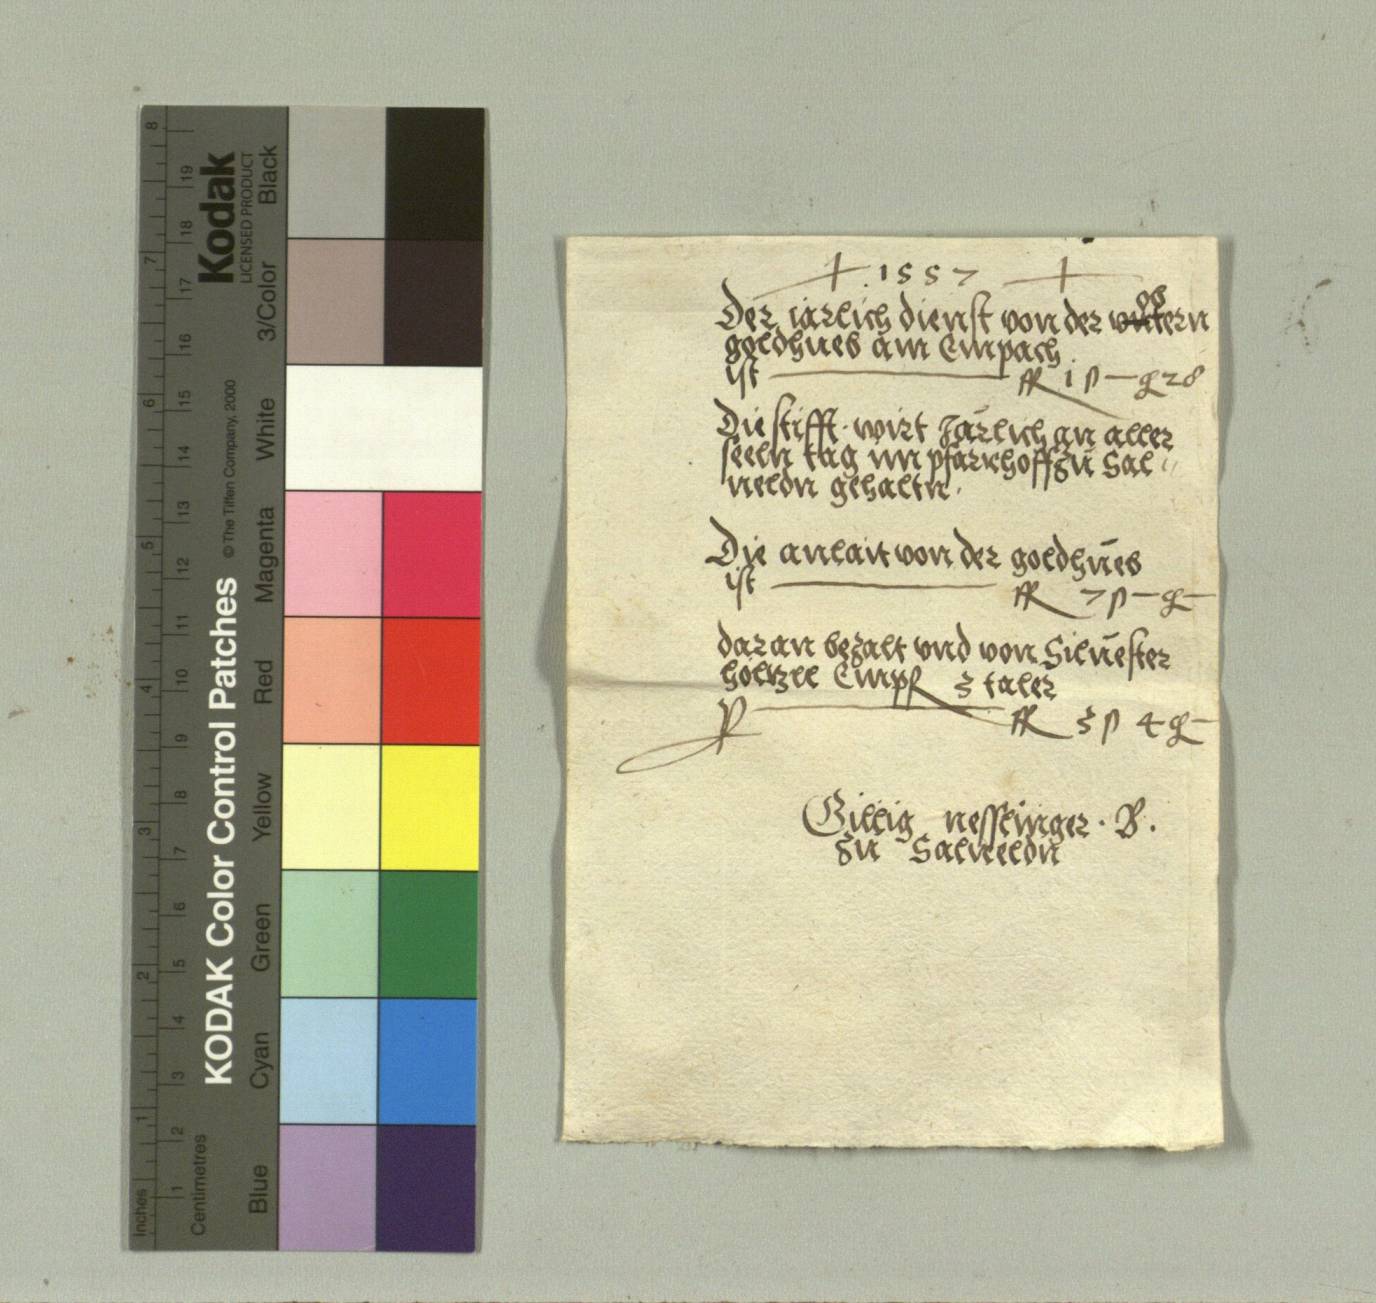 8
7
6
5
4
3
2
1
Inches
19
18
17
16
15
14
13
12
11
10
9
8
7
6
5
4
3
2
1
Centimetres
KODAK Color Control Patches
© The Tiffen Company, 2000
Kodak
LICENSED PRODUCT
Blue
Cyan
Green
Yellow
Red
Magenta
White
3/Color
Black
1557
ob
Der iärlich dienst von der untern
goldhueb am Empach
ist 1 ß — 28
Die stifft wirt Järlich an aller
seeln tag im pfarrhoff zu Sal
ueldn gehaltn.
Die anlait von der goldhueb
ist 7 ß —
daran bezalt vnd von Siluester
höltzll Empf 3 taler
3 ß 4
Gillig nesslinger . B.
zu Salueldn